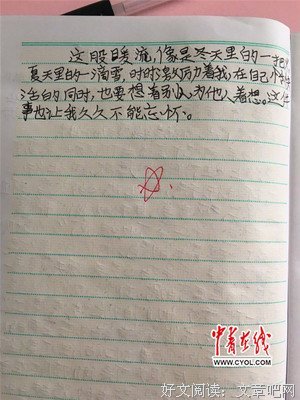 这股暖流,像是冬天里的一把
夏天里的一滴雪,时时激励着我,在自己快
活的同时,也要想着别人,为他人着想。这件
事也让我久久不能忘怀。
中青在线
WWW.CYOL.COM
好文阅读:文章吧网